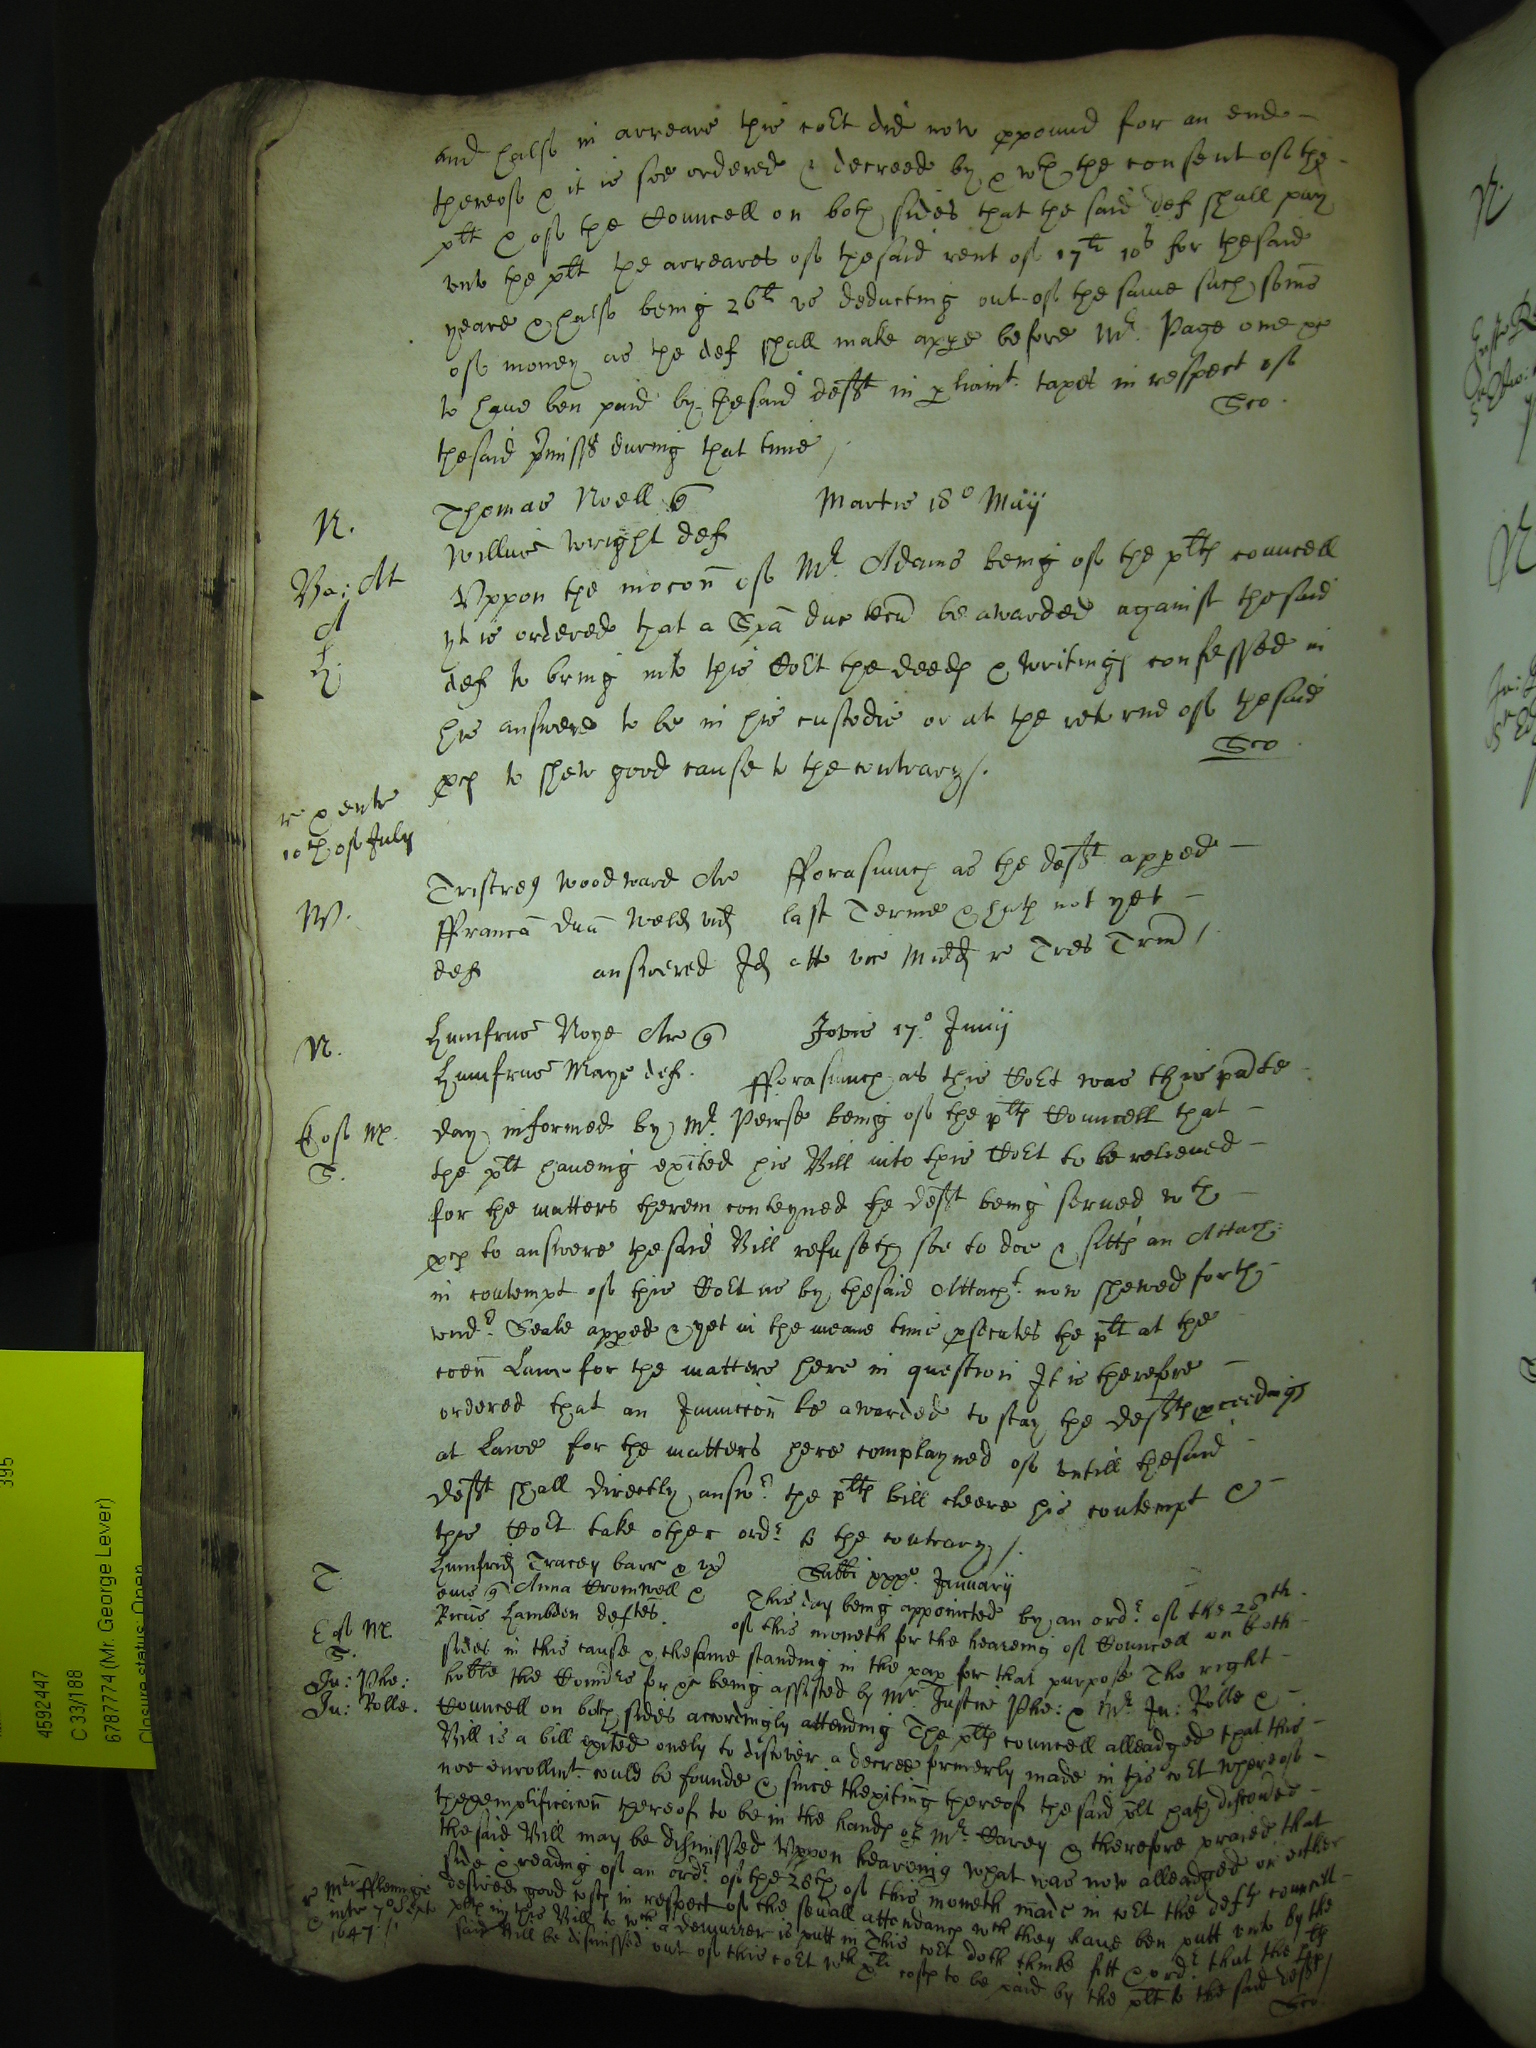 and halfe in arreare this co͠rt did now ppound for an end
thereof & it is soe ordered & decreed by & wth the consent of the
plt & of the Councell on both sides that the said def shall pay
vnto the plt the arreares of thesaid rent of 17li 10s for thesaid
yeare & halfe being 26li vs deducting out of the same such som̄s
of money as the def shall make appe before Mr. Page one &c
to haue ben paid by thesaid defft in pliamt. taxes in respect of
thesaid p̄miss͠s during that time /
N.
Thomas Noell q
Martis 18o Maij
Willus Wright def
Va: At
A
H
Vppon the moc̄on of Mr. Adams being of the plts councell
yt is ordered that a Sp̄a duc tecū be awarded against thesaid
def to bring into this Co͠rt the deeds & writings confessed in
his answere to be in his custodie or at the returne of thesaid
pces to shew good cause to the contrary /.
r & entr
10th of July
W.
Tristrm Woodward Ar
fforasmuch as the defft apped
ffrancā Dnā Weld vid
last Terme & hath not yet
def
answered Id atts vic Midd r Tres Trin͠d /
N.
Humfrus Noye Ar q
Jovis 17.o Junij
Humfrus Maye def.
fforasmuch as this Co͠rt was this p̄nte
E of M.
S.
day informed by Mr. Peirse being of the plts Councell that
the plt haueing exited his Bill into this Co͠rt to be releeued
for the matters therein conteyned the defft being serued wth
pces to answere thesaid Bill refuseth soe to doe & sitts an Attach:
in contempt of this Co͠rt as by thesaid Attacht. now shewed forth
vndr. Seale apped & yet in the meane time psecutes the plt at the
com̄on Lawe for the matters here in question It is therefore
ordered that an Iniuncc̄on be awarded to stay the deffts pceedings
at Lawe for the matters here complayned of vntill thesaid
defft shall directly answr. the plts bill cleere his contempt &
this Co͠rt take other ordr. to the contrary /.
T.
Humfrid Tracey barr & ux
Sabti xxxo. Januarij
eius q Anna Cromwell &
This day being appointed by an ordr. of the 28th.
E of M.
S.
Ricūs Lambden deftes.
of this moneth for the heareing of Councell on both
sides in this cause & thesame standing in the pap for that purpose The right
Ju: Phe:
hoble the Com̄rs for &c being assisted by Mr. Justice Phe: & Mr. Ju: Rolle &
Ju: Rolle.
Councell on both sides accordingly attending The plts councell alleadged that this
Bill is a bill exited onely to discover a decree formerly made in this co͠rt whereof
noe enrollmt. could be founde & since thexiting thereof thesaid plt hath discoued
thexemplificac̄on thereof to be in the hands of Mr. Carey & therefore praied that
thesaid Bill may be dismissed Vppon heareing what was now alleadged on either
side & reading of an ordr. of the 28th of this moneth made in co͠rt the defts councell
desired good costs in respect of the seu͠all attendances wch they haue ben putt vnto by the
plts in this Bill to wch a demurrer is putt in This co͠rt doth thinke fitt & ordr. that the plts
said Bill be dismissed out of this co͠rt wth costs to be paid by the plt to the said deffts /
1647 /.
4592447
C 33/188
6787774 (Mr. George Lever)
Closure status: Open
395